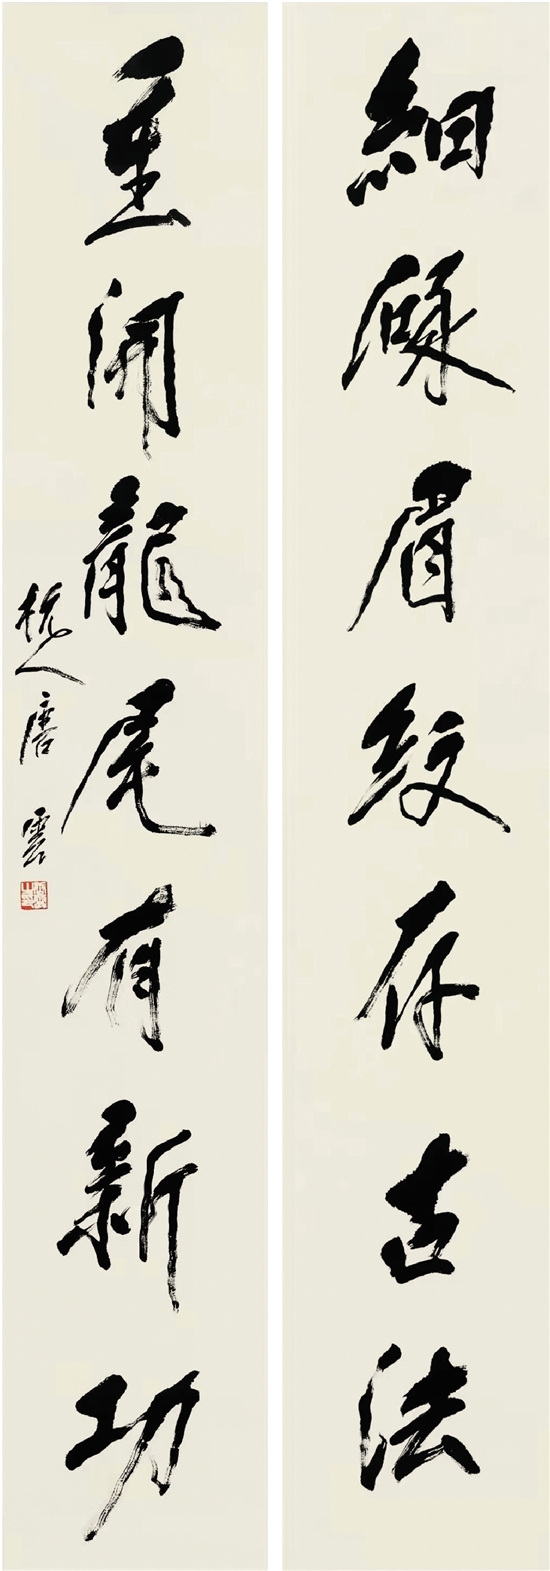 細眉紋存古法
重開龍尾有新功
杭人唐雲